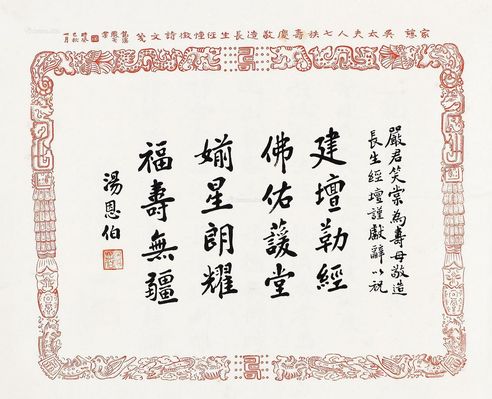 家慈吳太夫人七秩壽慶敬造長生經幢徵詩文箋
嚴君笑棠為壽母敬造
長生經壇謹獻辭以祝
建壇勒經
佛佑萲堂
婺星朗耀
福壽無疆
湯恩伯